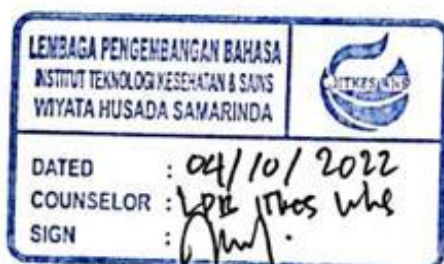 LEMBAGA PENGEMBANGAN BAHASA
INSTITUT TEKNOLOGI KESEHATAN & SAINS
WIYATA HUSADA SAMARINDA
ITKES WHS
DATED : 04/10/2022
COUNSELOR : LPB ITKes WHS
SIGN :